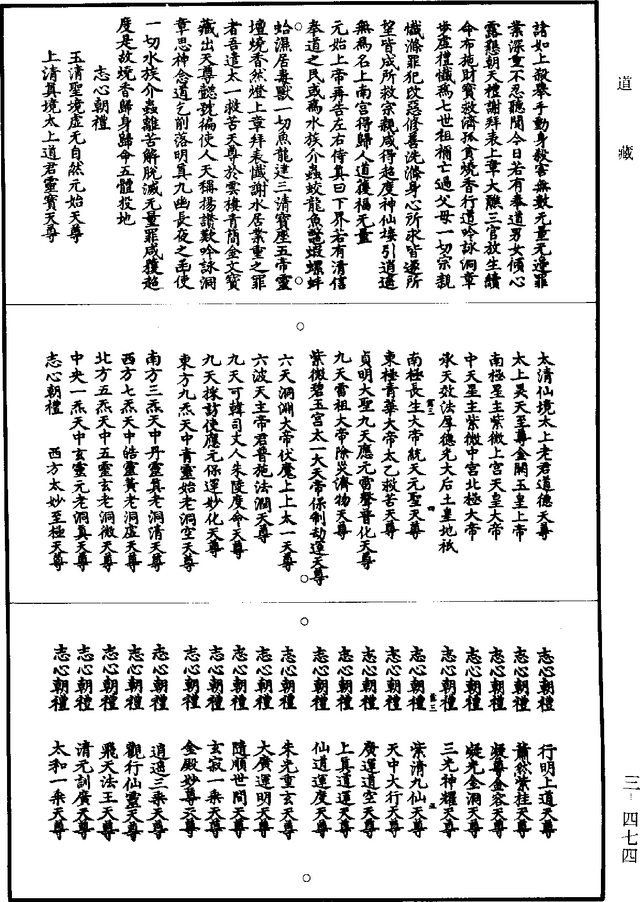 道藏
諸如上殺舉手動身殺害無數无量无邊罪
業深重不忍聽聞今日若有奉道男女傾心
露懇朝天禮謝拜表上章大醮三官放生續
命布施財寶救濟孤貧燒香行道吟詠洞章
步虛禮懺為七世祖禰亡過父母一切宗親
懺滌罪犯改惡修善洗滌身心所求皆遂所
望皆成所救宗親咸得超度神仙接引逍遙
無為名上南宮得歸人道獲福无量
元始上帝再告左右侍真曰下界若有清信
奉道之民或為水族介蟲蛟龍魚鼈蝦螺蚌
蛤濕居毒獸一切魚龍建三清寶座五帝靈
壇燒香然燈上章拜表懺謝水居業重之罪
者吾遣太一救苦天尊於雲積青簡金文寶
藏出天尊懿號徧使人天稱揚讚歎吟詠洞
章思神念道乞前落明真九幽長夜之函使
一切水族介蟲離苦解脫滅无量罪咸獲超
度是故燒香歸身歸命五體投地
志心朝禮
玉清聖境虛无自然元始天尊
上清真境太上道君靈寶天尊
太清仙境太上老君道德天尊
太上昊天至尊金闕玉皇上帝
南極星主紫微上宮天皇大帝
中天星主紫微中宮北極大帝
承天效法厚德光大后土皇地祇
南極長生大帝統天元聖天尊
東極青華大帝太乙救苦天尊
貞明大聖九天應元雷聲普化天尊
九天雷祖大帝除災濟物天尊
紫微碧玉宮太一大天帝保制劫運天尊
六天洞淵大帝伏魔上上太一天尊
六波天主帝君普施法潤天尊
九天可韓司丈人朱陵度命天尊
九天採訪使應元保運妙化天尊
東方九炁天中青靈始老洞空天尊
南方三炁天中丹靈真老洞清天尊
西方七炁天中皓靈黃老洞虛天尊
北方五炁天中五靈玄老洞微天尊
中央一炁天中玄靈元老洞真天尊
志心朝禮 西方太妙至極天尊
志心朝禮 行明上道天尊
志心朝禮 蕭然紫柱天尊
志心朝禮 凝尊金容天尊
志心朝禮 凝光金洞天尊
志心朝禮 三光神耀天尊
志心朝禮 紫清九仙天尊
志心朝禮 天中大行天尊
志心朝禮 廣運道空天尊
志心朝禮 上真道運天尊
志心朝禮 仙道運度天尊
志心朝禮 朱光重玄天尊
志心朝禮 大廣運明天尊
志心朝禮 隨順世間天尊
志心朝禮 玄寂一乘天尊
志心朝禮 金殿妙尊天尊
志心朝禮 逍遙三乘天尊
志心朝禮 觀行仙靈天尊
志心朝禮 飛天法王天尊
志心朝禮 清元訓廣天尊
志心朝禮 太和一乘天尊
三-四七四